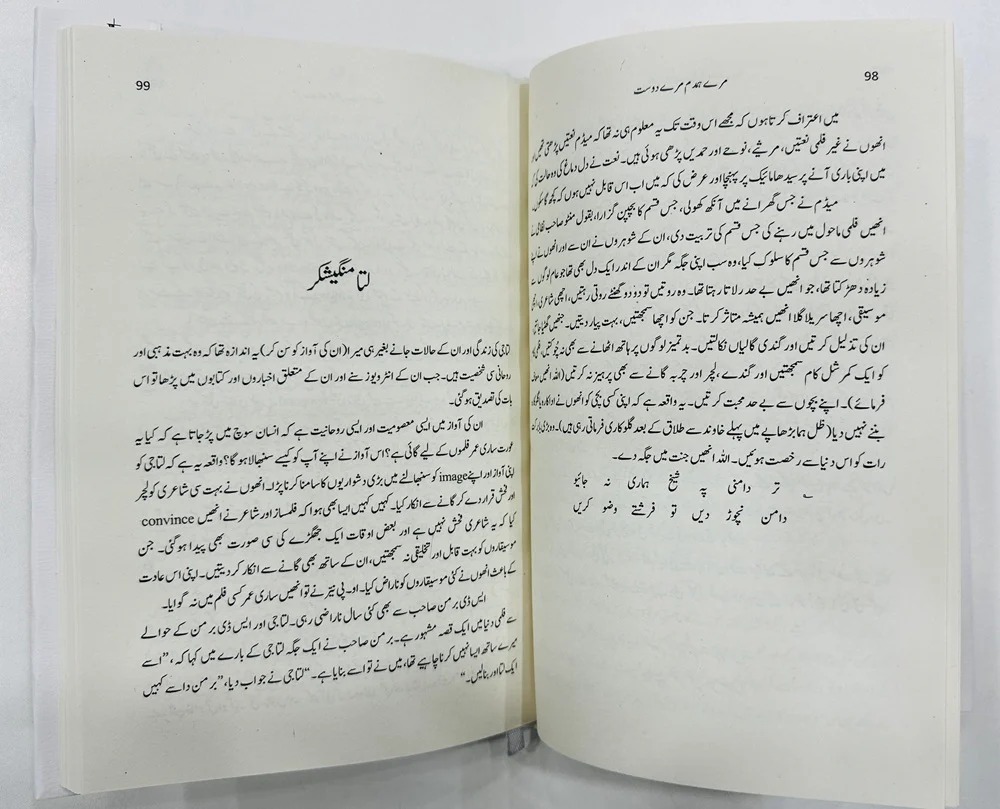 98
مرے ہمدم مرے دوست
میں اعتراف کرتا ہوں کہ مجھے اس وقت تک یہ معلوم ہی نہ تھا کہ میڈم نعتیں پڑھتی تھیں اور
انھوں نے غیر فلمی نعتیں، مرثیے، نوحے اور حمدیں پڑھی ہوئی ہیں۔ نعت نے دل و دماغ کی وہ حالت کی کہ
میں اپنی باری آنے پر سیدھا مائیک پر پہنچا اور عرض کی کہ میں اب اس قابل نہیں ہوں کہ کچھ گا سکوں۔
میڈم نے جس گھرانے میں آنکھ کھولی، جس قسم کا بچپن گزارا، بقول منٹو صاحب
انھیں فلمی ماحول میں رہنے کی جس قسم کی تربیت دی، ان کے شوہروں نے ان سے اور انھوں نے اپنے
شوہروں سے جس قسم کا سلوک کیا، وہ سب اپنی جگہ مگر ان کے اندر ایک دل بھی تھا جو عام لوگوں سے
زیادہ دھڑکتا تھا، جو انھیں بے حد رلاتا رہتا تھا۔ وہ روتیں تو دو دو گھنٹے روتی رہتیں، اچھی شاعری، اچھی
موسیقی، اچھا سریلا گلا انھیں ہمیشہ متاثر کرتا۔ جن کو اچھا سمجھتیں، بہت پیار دیتیں۔ جنھیں گھٹیا جانتیں
ان کی تذلیل کرتیں اور گندی گالیاں نکالتیں۔ بدتمیز لوگوں پر ہاتھ اٹھانے سے بھی نہ چوکتیں،
کو ایک کمرشل کام سمجھتیں اور گندے، لچر اور چربہ گانے سے بھی پرہیز نہ کرتیں (اللہ انھیں معاف
فرمائے)۔ اپنے بچوں سے بے حد محبت کرتیں۔ یہ واقعہ ہے کہ اپنی کسی بچی کو انھوں نے اداکارہ یا گلوکارہ
بننے نہیں دیا (ظل ہما بڑھاپے میں پہلے خاوند سے طلاق کے بعد گلوکاری فرماتی رہی ہیں)۔ وہ بڑی بابرکت
رات کو اس دنیا سے رخصت ہوئیں۔ اللہ انھیں جنت میں جگہ دے۔
تر دامنی پہ شیخ ہماری نہ جائیو
دامن نچوڑ دیں تو فرشتے وضو کریں
99
لتا منگیشکر
لتا جی کی زندگی اور ان کے حالات جانے بغیر ہی میرا (ان کی آواز کو سن کر) یہ اندازہ تھا کہ وہ بہت مذہبی اور
روحانی سی شخصیت ہیں۔ جب ان کے انٹرویوز سنے اور ان کے متعلق اخباروں اور کتابوں میں پڑھا تو اس
بات کی تصدیق ہو گئی۔
ان کی آواز میں ایسی معصومیت اور ایسی روحانیت ہے کہ انسان سوچ میں پڑ جاتا ہے کہ کیا یہ
عورت ساری عمر فلموں کے لیے گاتی ہے؟ اس آواز نے اپنے آپ کو کیسے سنبھالا ہو گا؟ واقعہ یہ ہے کہ لتا جی کو
اپنی آواز اور اپنے image کو سنبھالنے میں بڑی دشواریوں کا سامنا کرنا پڑا۔ انھوں نے بہت سی شاعری کو لچر
اور فحش قرار دے کر گانے سے انکار کیا۔ کہیں کہیں ایسا بھی ہوا کہ فلمساز اور شاعر نے انھیں convince
کیا کہ یہ شاعری فحش نہیں ہے اور بعض اوقات ایک جھگڑے کی سی صورت بھی پیدا ہو گئی۔ جن
موسیقاروں کو بہت قابل اور تخلیقی نہ سمجھتیں، ان کے ساتھ بھی گانے سے انکار کر دیتیں۔ اپنی اس عادت
کے باعث انھوں نے کئی موسیقاروں کو ناراض کیا۔ او۔ پی نیر نے تو انھیں ساری عمر کسی فلم میں نہ گوایا۔
ایس ڈی برمن صاحب سے بھی کئی سال ناراضی رہی۔ لتا جی اور ایس ڈی برمن کے حوالے
سے فلمی دنیا میں ایک قصہ مشہور ہے۔ برمن صاحب نے ایک جگہ لتا جی کے بارے میں کہا کہ، ”اسے
میرے ساتھ ایسا نہیں کرنا چاہیے تھا، میں نے تو اسے بنایا ہے۔“ لتا جی نے جواب دیا، ”برمن دا سے کہیں
ایک لتا اور بنا لیں۔“